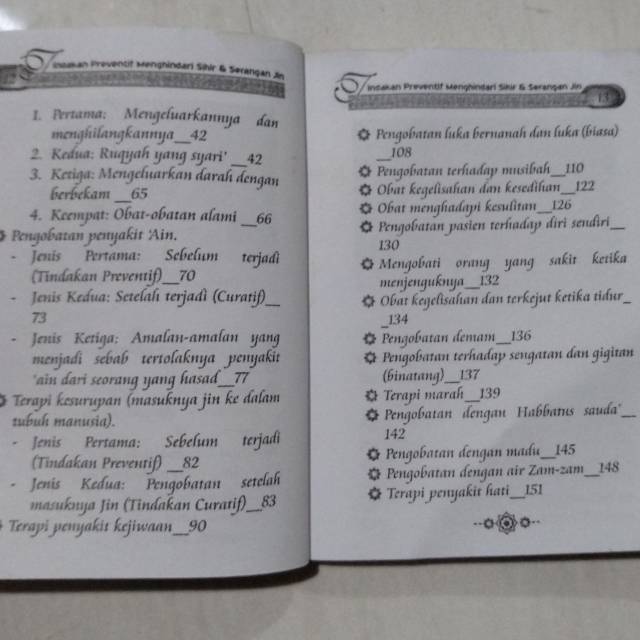 Tindakan Preventif Menghindari Sihir & Serangan Jin
1. Pertama: Mengeluarkannya dan
menghilangkannya__42
2. Kedua: Ruqyah yang syari' __42
3. Ketiga: Mengeluarkan darah dengan
berbekam __65
4. Keempat: Obat-obatan alami __66
Pengobatan penyakit 'Ain.
- Jenis Pertama: Sebelum terjadi
(Tindakan Preventif)__70
- Jenis Kedua: Setelah terjadi (Curatif)__
73
- Jenis Ketiga: Amalan-amalan yang
menjadi sebab tertolaknya penyakit
'ain dari seorang yang hasad__77
Terapi kesurupan (masuknya jin ke dalam
tubuh manusia).
- Jenis Pertama: Sebelum terjadi
(Tindakan Preventif) __82
- Jenis Kedua: Pengobatan setelah
masuknya Jin (Tindakan Curatif)__83
Terapi penyakit kejiwaan__90
Tindakan Preventif Menghindari Sihir & Serangan Jin
13
Pengobatan luka bernanah dan luka (biasa)
__108
Pengobatan terhadap musibah__110
Obat kegelisahan dan kesedihan__122
Obat menghadapi kesulitan__126
Pengobatan pasien terhadap diri sendiri__
130
Mengobati orang yang sakit ketika
menjenguknya__132
Obat kegelisahan dan terkejut ketika tidur_
_134
Pengobatan demam__136
Pengobatan terhadap sengatan dan gigitan
(binatang)__137
Terapi marah__139
Pengobatan dengan Habbatus sauda'__
142
Pengobatan dengan madu__145
Pengobatan dengan air Zam-zam__148
Terapi penyakit hati__151